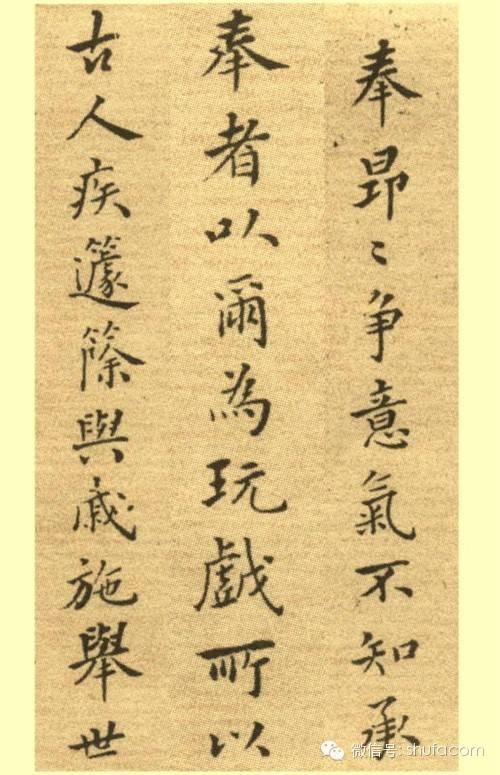 奉昂〻争意氣不知承
奉者以爾為玩戲所以
古人疾籧篨與戚施舉世
微信号: shufacom